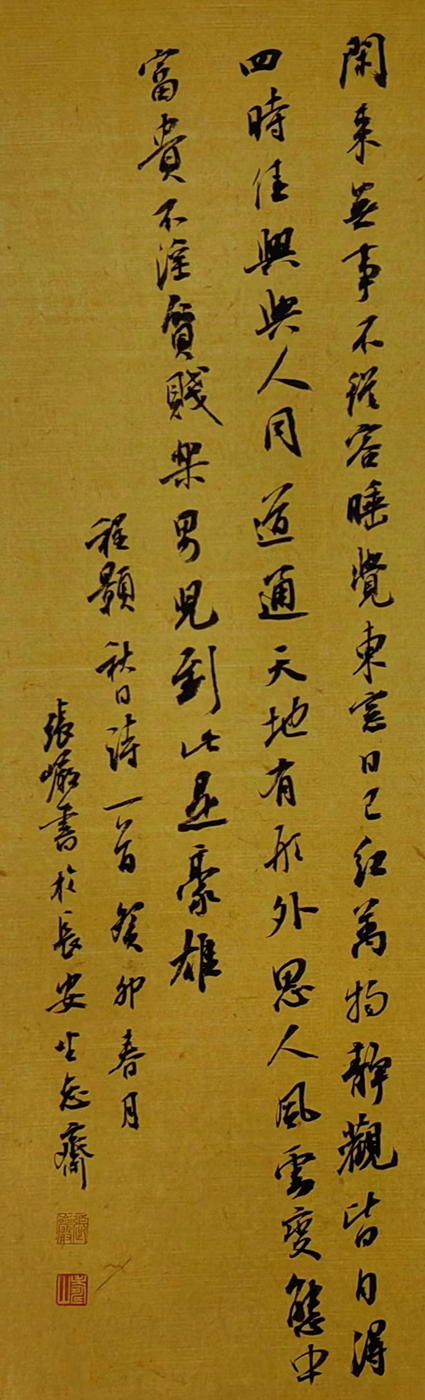 閑来無事不從容睡覺東窓日已紅萬物靜觀皆自得
四時佳興與人同道通天地有形外思入風雲變態中
富貴不淫貧賤樂男兒到此是豪雄
程顥秋日詩一首癸卯春月
張巖書於長安坐忘齋